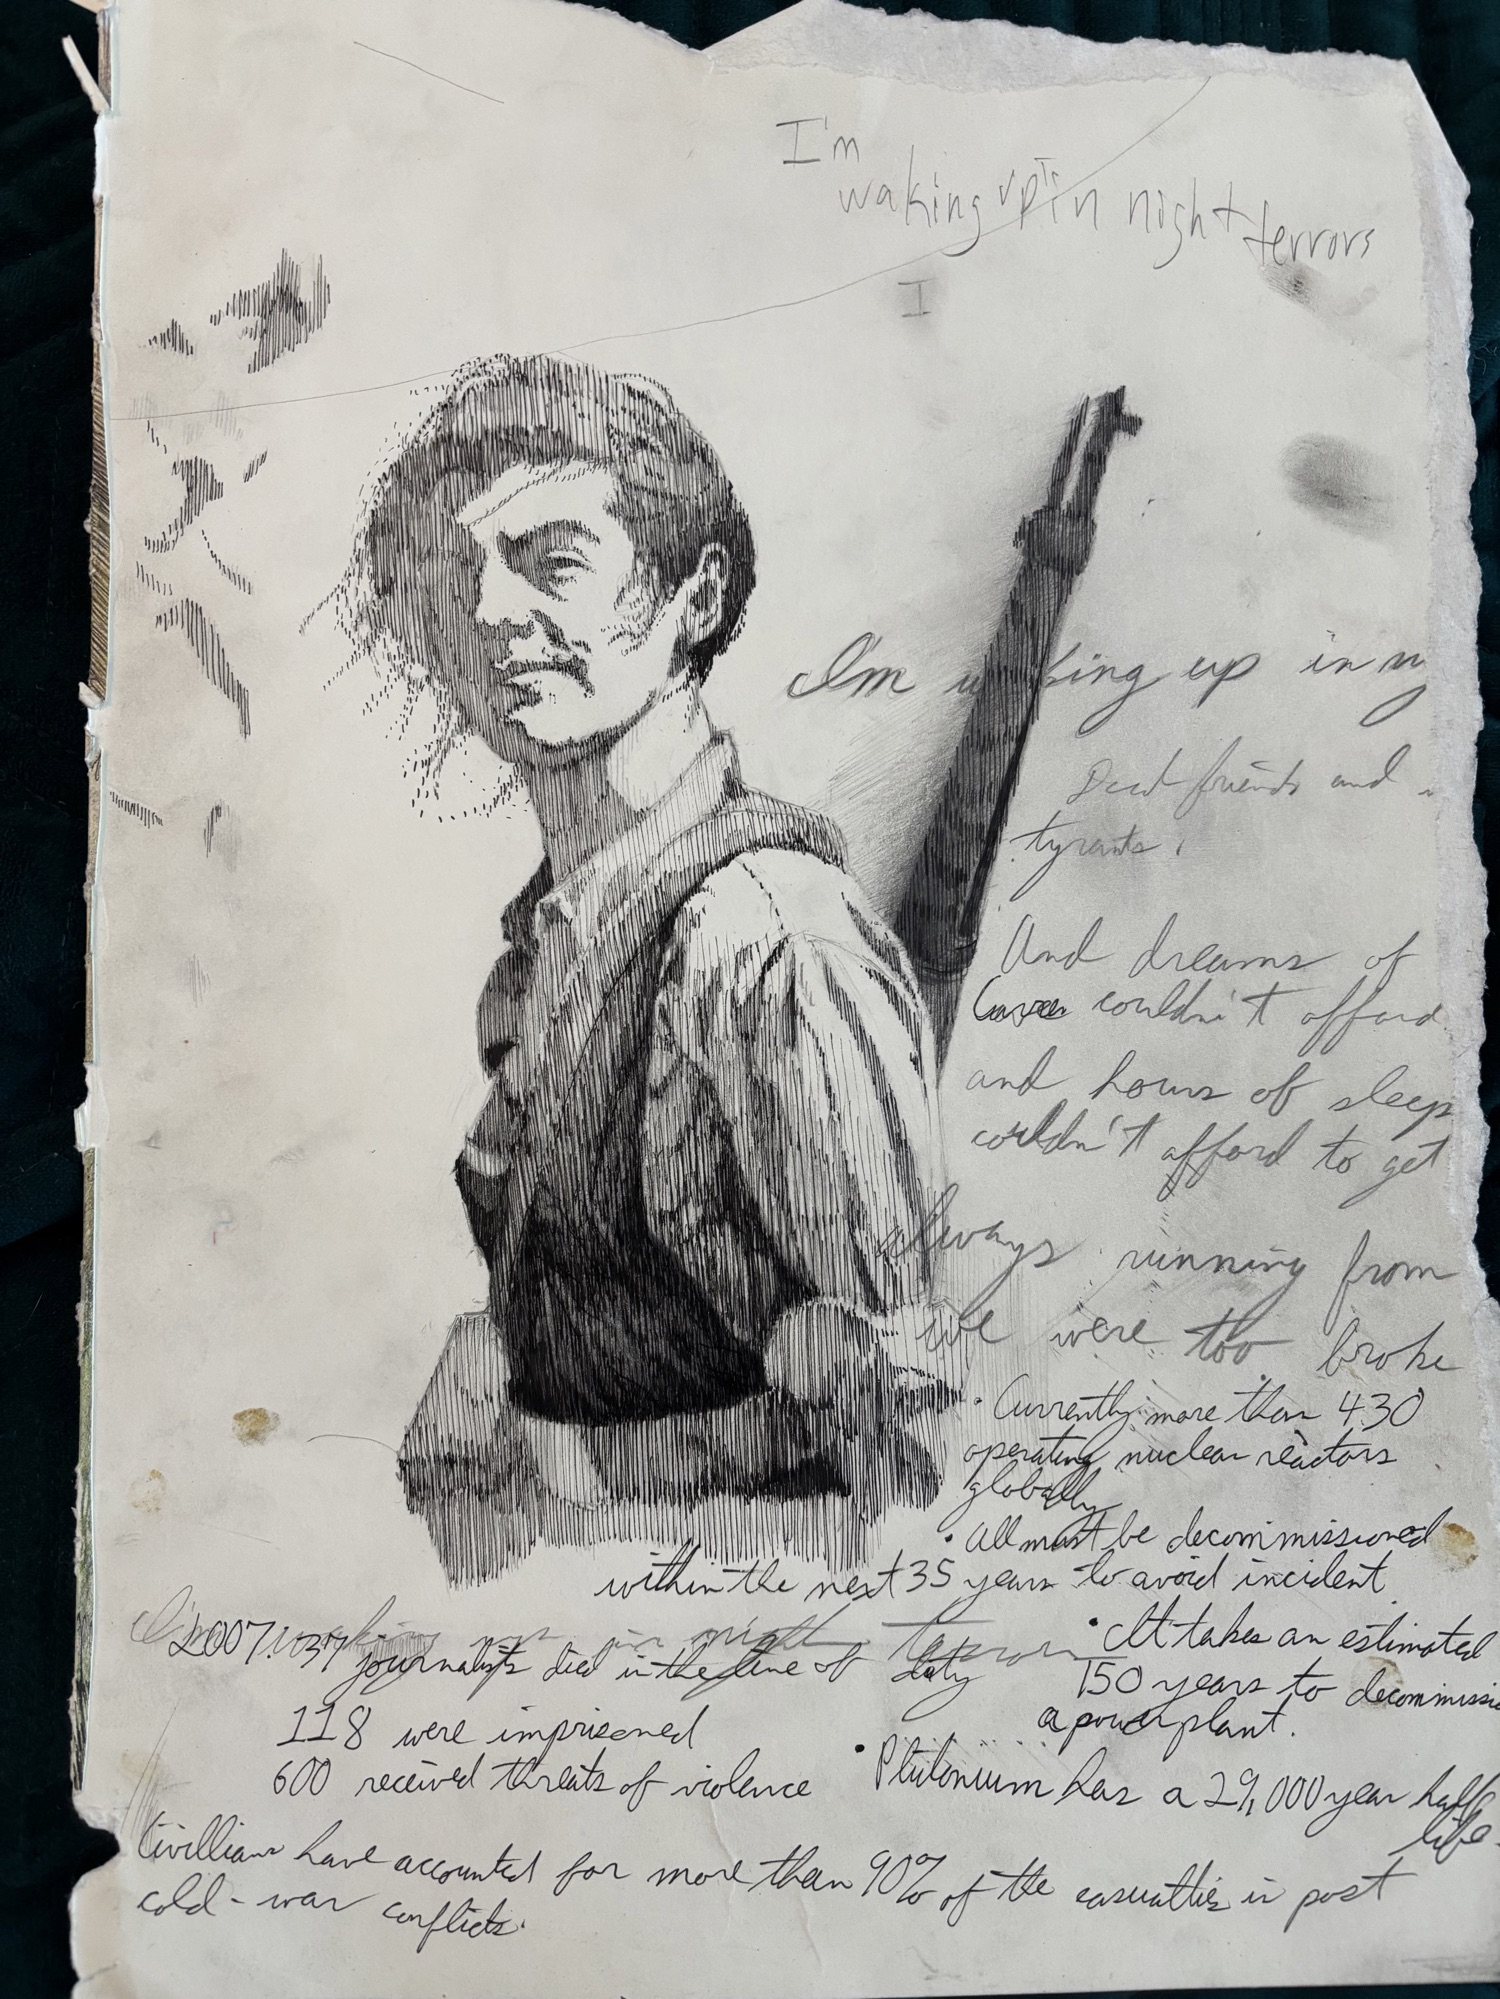 I'm
waking up in night terrors
I
I'm waking up in n
Dead friends and
tyrants.
And dreams of
couldn't afford
and hours of sleep
couldn't afford to get
always running from
we were too broke
• Currently more than 430
operating nuclear reactors
globally
• All must be decommissioned
within the next 35 years to avoid incident
I'm waking up in night terrors
2007: 37 journalists died in the line of duty
118 were imprisoned
600 received threats of violence
• It takes an estimated
150 years to decommissi
a power plant.
• Plutonium has a 29,000 year half
life.
Civillians have accounted for more than 90% of the casualties in post
cold-war conflicts.